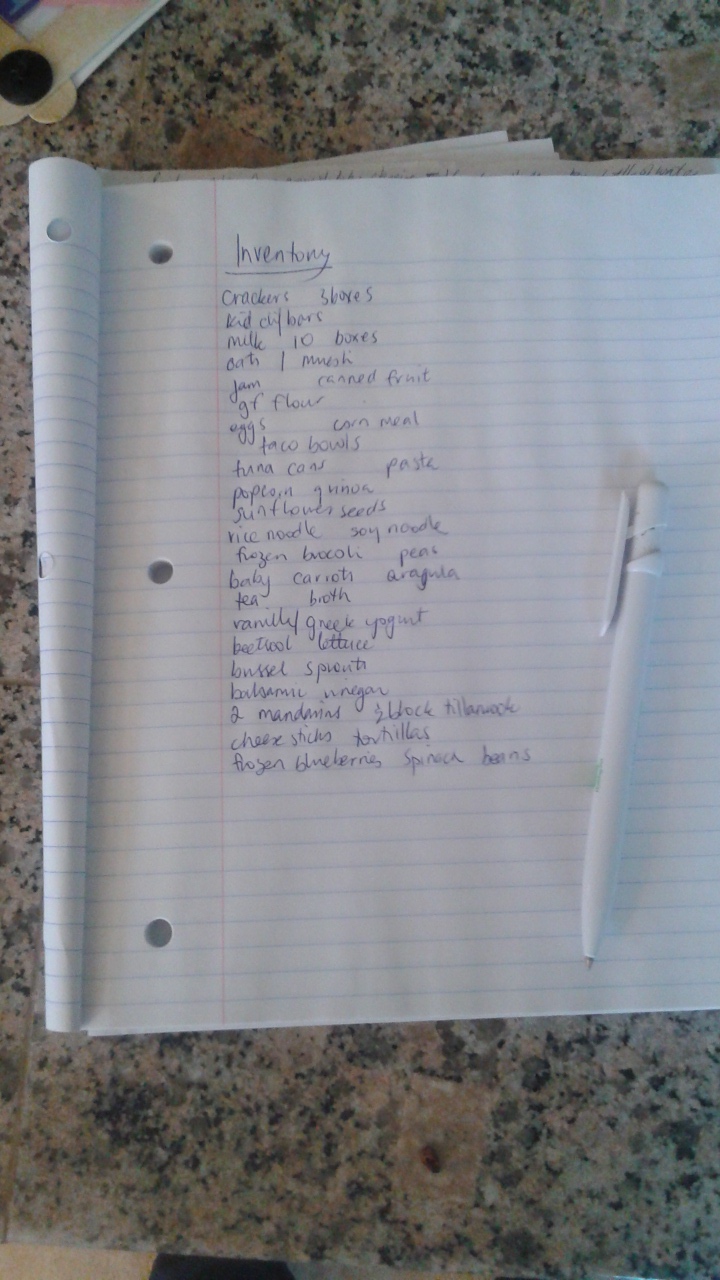 Inventory
Crackers 3 boxes
kid clif bars
milk 10 boxes
oats / muesli
Jam canned fruit
gf flour
eggs corn meal
taco bowls
tuna cans pasta
popcorn quinoa
sunflower seeds
rice noodle soy noodle
frozen brocoli peas
baby carrots aragula
tea broth
vanilla/greek yogurt
beetroot lettuce
brussel sprouts
balsamic vinegar
2 mandarins ½ block tillamook
cheese sticks tortillas
frozen blueberries spinach beans